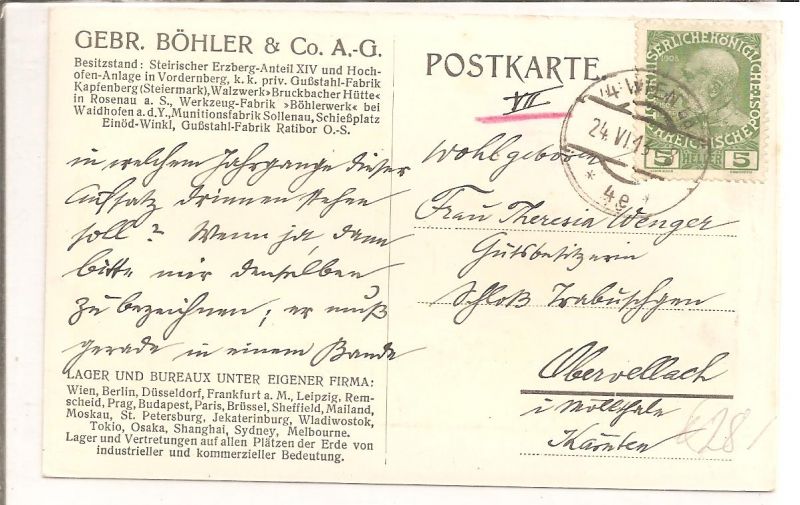 GEBR. BÖHLER & Co. A.-G.
Besitzstand: Steirischer Erzberg-Anteil XIV und Hoch-
ofen-Anlage in Vordernberg, k. k. priv. Gußstahl-Fabrik
Kapfenberg (Steiermark), Walzwerk »Bruckbacher Hütte«
in Rosenau a. S., Werkzeug-Fabrik »Böhlerwerk« bei
Waidhofen a.d.Y., Munitionsfabrik Sollenau, Schießplatz
Einöd-Winkl, Gußstahl-Fabrik Ratibor O.-S.
in welchem Jahrgange dieser
Aufsatz drinnen stehen
soll? Wenn ja, dann
bitte mir denselben
zu bezeichnen; er muß
gerade in einem Bande
LAGER UND BUREAUX UNTER EIGENER FIRMA:
Wien, Berlin, Düsseldorf, Frankfurt a. M., Leipzig, Rem-
scheid, Prag, Budapest, Paris, Brüssel, Sheffield, Mailand,
Moskau, St. Petersburg, Jekaterinburg, Wladiwostok,
Tokio, Osaka, Shanghai, Sydney, Melbourne.
Lager und Vertretungen auf allen Plätzen der Erde von
industrieller und kommerzieller Bedeutung.
POSTKARTE.
VII
4 WIEN
24.VI.13
* 4e *
5 HELLER 5
Wohlgeboren
Frau Theresia Wenger
Gutsbesitzerin
Schloß Trabuschgen
Obervellach
i Möllthale
Kärnten